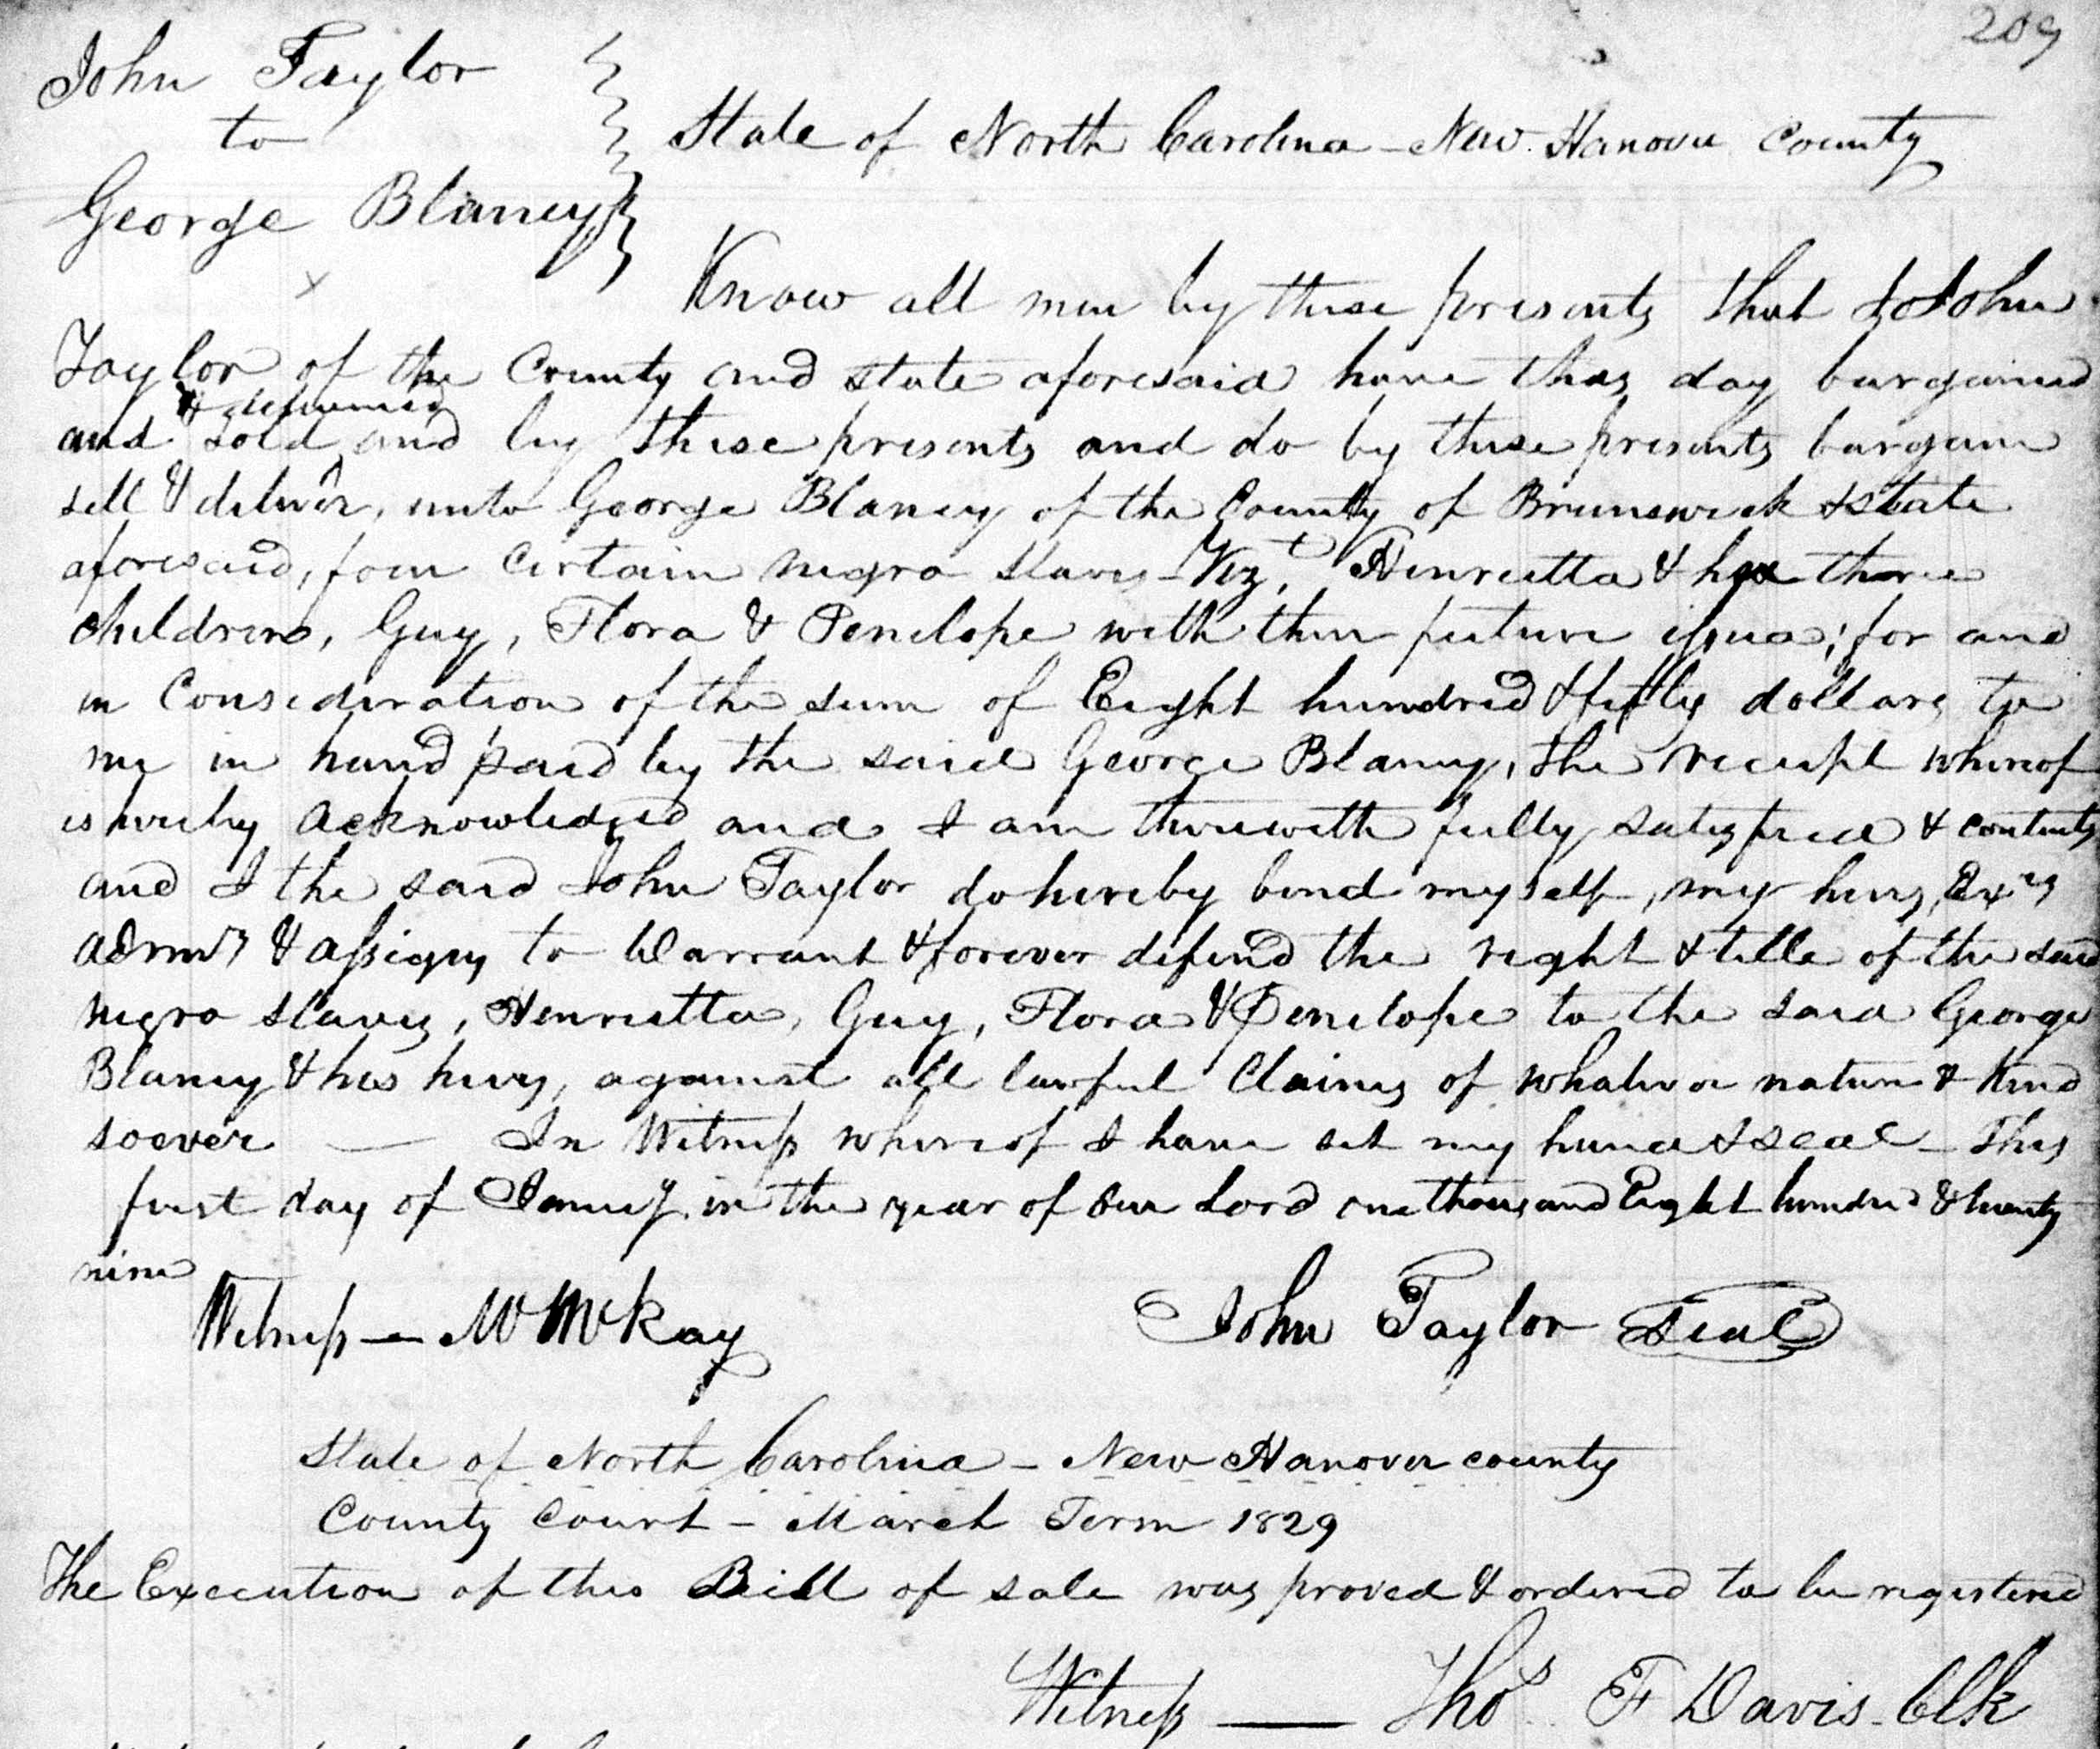 209
John Taylor
to
George Blaney
State of North Carolina - New Hanover County
Know all men by these presents that I John
Taylor of the County and State aforesaid have this day bargained
& delivered
and sold and by these presents and do by these presents bargain
sell & deliver, unto George Blaney of the County of Brunswick & State
aforesaid, four certain negro slaves - Vizt. Henrietta & her three
children, Guy, Flora & Penelope with their future issue; for and
in Consideration of the sum of Eight hundred & fifty dollars to
me in hand paid by the said George Blaney, the receipt whereof
is hereby acknowledged and I am therewith fully satisfied & contents
and I the said John Taylor do hereby bind myself, my heirs, Exrs
Admrs & assigns to Warrant & forever defend the right & title of the said
negro slaves, Henrietta, Guy, Flora & Penelope to the said George
Blaney & his heirs, against all lawful Claims of whatever nature & kind
soever — In Witness whereof I have set my hand & seal - This
first day of Jany. in the year of our Lord one thousand Eight hundred & twenty
nine
Witness — W McKay
John Taylor Seal
State of North Carolina - New Hanover county
County Court - March Term 1829
The Execution of this Bill of sale was proved & ordered to be registered
Witness — Thos. F Davis. Clk